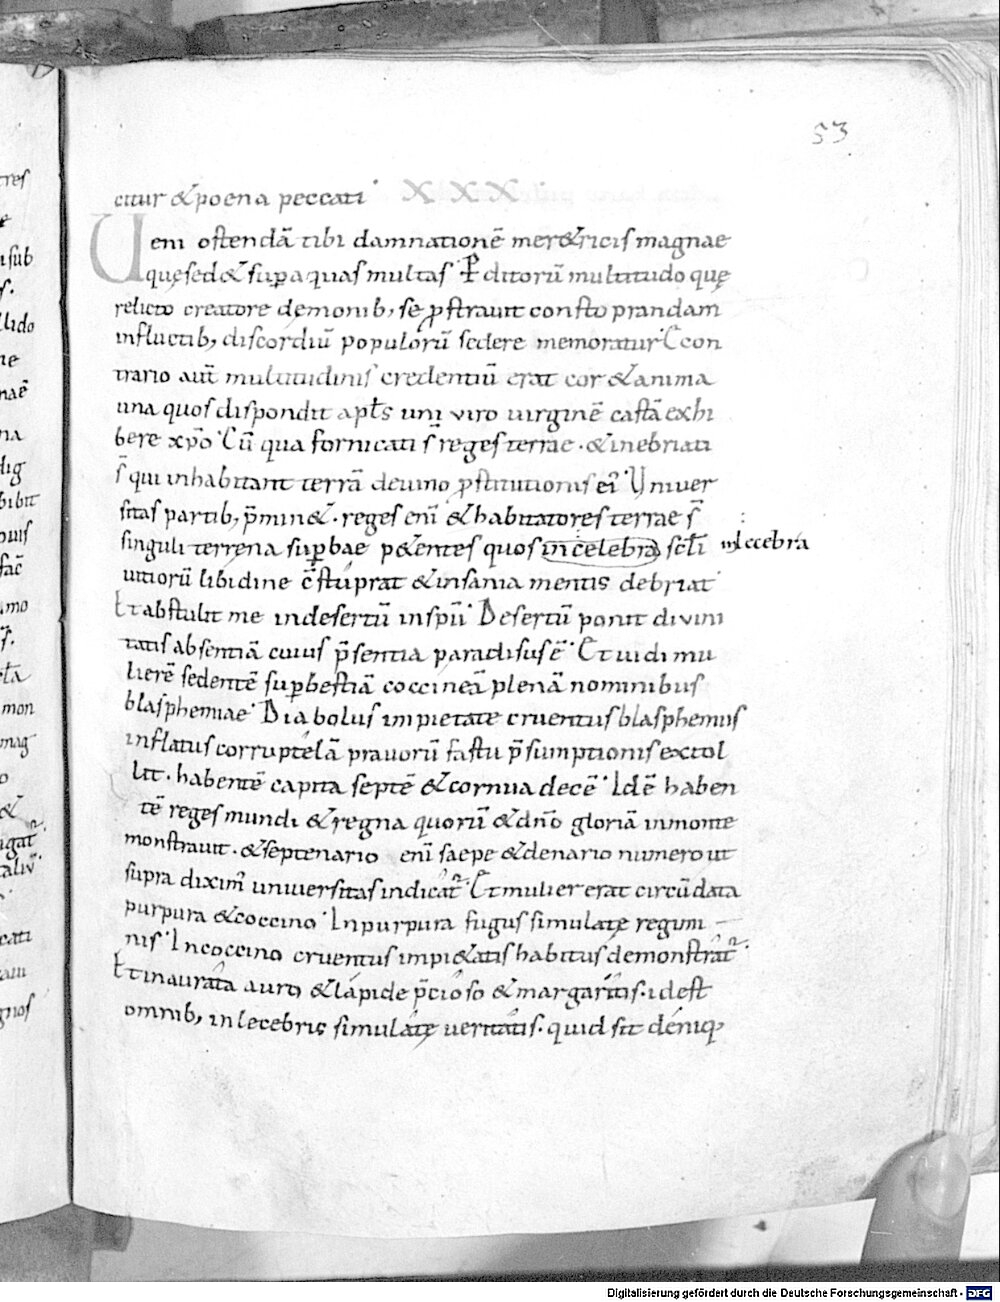 53
citur & poena peccati· XXX
Ueni ostendā tibi damnationē mer&ricis magnae
quę sed& sup aquas multas· P̄ditorū multitudo quę
relicto creatore demonib; se p̄strauit consto prandam
influctib; discordiū populorū sedere memoratur· Econ
trario aut̄ multitudinis credentiū erat cor & anima
una quos dispondit apłs uni viro uirginē castā exhi
bere xp̄o· Cū qua fornicati s̄ reges terrae· & inebriati
s̄ qui inhabitant terrā deuino p̄stitutionis ei᷎· Uniuer
sitas partib; p̄min&· reges enī & habitatores terrae s̄
singuli terrena supbae p&entes quos incelebra scłi inlecebra
uitiorū libidine c̄stuprat & insania mentis debriat·
Et abstulit me indesertū inspū· Desertū ponit divini
tatis absentiā cuius p̄sentia paradisus ē· Et uidi mu
lierē sedentē sup bestiā coccineā plenā nominibus
blasphemiae· Diabolus impietate cruentus blasphemiis
inflatus corruptelā prauorū fastu p̄sumptionis extol
lit· habentē capita septē & cornua decē· Idē haben
tē reges mundi & regna quorū & dn̄o gloriā inmonte
monstrauit· & septenario enī saepe & denario numero ut
supra dixim᷎ uniuersitas indicat᷎· Et mulier erat circūdata
purpura & coccino· Inpurpura fugus simulatę regimi
nis· Incoccino cruentus impi&atis habitus demonstrat᷎·
Et inaurata auro & lapide p̄cioso & margaritis· idest
omnib; inlecebris simulatę ueritatis· quid sit deniq;
Digitalisierung gefördert durch die Deutsche Forschungsgemeinschaft - DFG